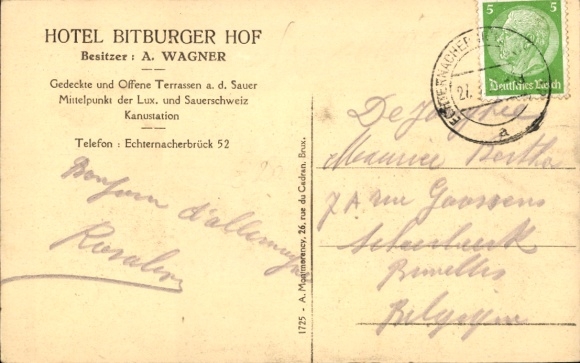 HOTEL BITBURGER HOF
Besitzer : A. WAGNER
Gedeckte und Offene Terrassen a. d. Sauer
Mittelpunkt der Lux. und Sauerschweiz
Kanustation
Telefon : Echternacherbrück 52
Bonjour d'allemagne
1725 - A. Montmorency, 26, rue du Cadran, Brux.
5 5
Deutsches Reich
ECHTERNACHER
27.
a
Maurice Berthe
7A rue Goossens
Schaerbeek
Bruxelles
Belgique